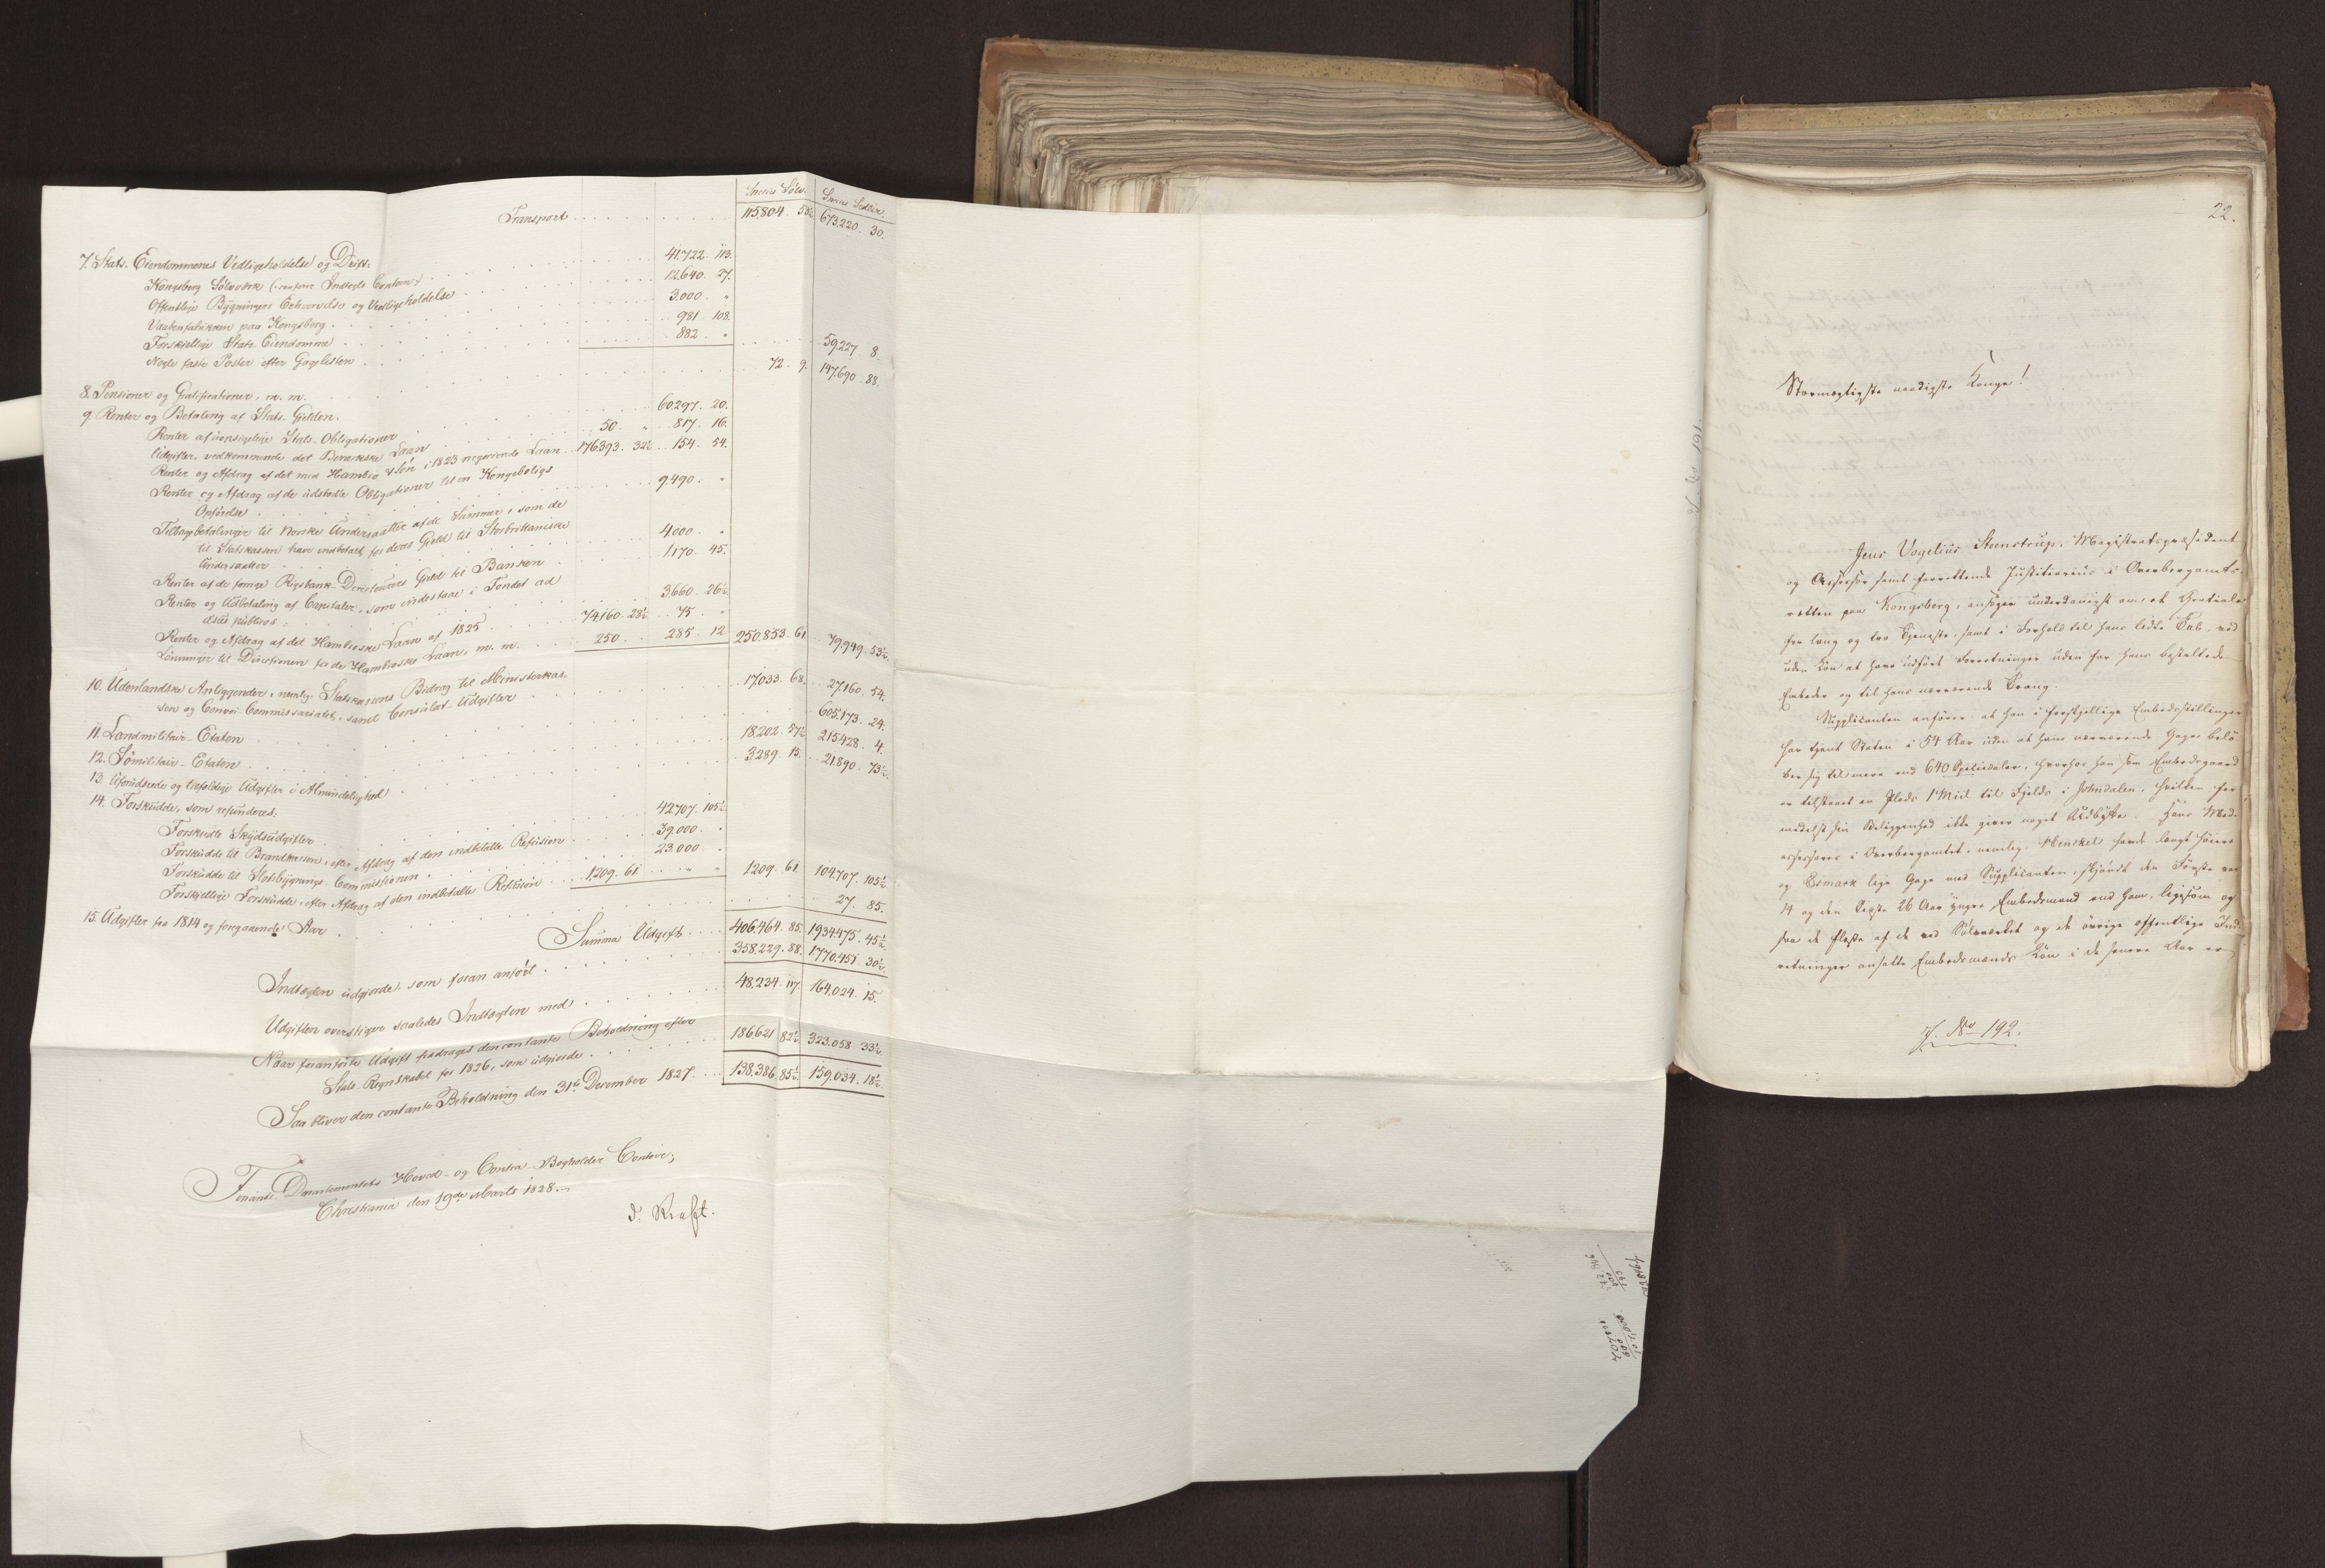 Species Sølv. Species Sedler.
Transport . . . 115,804. 58½ 673,220. 30.
7. Stats-Eiendommenes Vedligeholdelse og Drift:
Kongsberg Sølvværk (conferer Indtægts Contoen) . . . 41,722. 113.
Offentlige Bygningers Erhvervelse og Vedligeholdelse . . . 12,640. 27.
Vaabenfabrikken paa Kongsberg . . . 3,000. "
Forskjellige Stats-Eiendomme . . . 981. 108.
Nogle faste Poster efter Gagelisten . . . 882. " 59,227. 8.
8. Pensioner og Gratificationer, m. m. . . . 72. 9. 147,690. 88.
9. Renter og Betaling af Stats-Gjelden.
Renter af uopsigelige Stats-Obligationer . . . 60,297. 20.
Udgifter, vedkommende det Benekske Laan . . . 50. " 817. 16.
Renter og Afdrag af det med Hambro & Søn i 1823 negocierede Laan . . 176,393. 32½ 154. 54.
Renter og Afdrag af de udstedte Obligationer til en Kongeboligs
Opførelse . . . 9,490. "
Tilbagebetalinger til Norske Undersaatter af de Summer, som de
til Statskassen have indbetalt for deres Gjeld til Storbrittaniske
Undersaatter . . . 4,000. "
Renter af de forrige Rigsbank-Directeurers Gjeld til Banken . . . 1,170. 45.
Renter og Udbetaling af Capitaler, som indestaae i Fondet ad
usus publicos . . . 3,660. 26½
Renter og Afdrag af det Hambroske Laan af 1825 . . . 74,160. 28½ 75. "
Lønninger til Directionen for de Hambroske Laan, m. m. . . . 250. " 285. 12 250,853. 61. 79,949. 53½.
10. Udenlandske Anliggender, nemlig: Statskassens Bidrag til Ministerkas-
sen og Convoi-Commissariatet, samt Consulat-Udgifter . . . 17,033. 68. 27,160. 54.
11. Landmilitair-Etaten . . . 605,173. 24.
12. Sømilitair-Etaten . . . 18,202. 57½ 215,428. 4.
13. Uforudseede og tilfældige Udgifter i Almindelighed . . . 3,289. 15. 21,890. 73½.
14. Forskudde, som refunderes:
Forskudte Skydsudgifter . . . 42,707. 105½
Forskudde til Brandkassen, efter Afdrag af den indbetalte Refusion . . . 39,000. "
Forskudde til Slotsbygnings-Commissionen . . . 23,000. "
Forskjellige Forskudde, efter Afdrag af den indbetalte Refusion . . . 1,209. 61. " " 1209. 61 104,707. 105½
15. Udgifter fra 1814 og foregaaende Aar . . . 27. 85.
Summa Udgift . . . 406,464. 85. 1,934,475. 45½.
Indtægten udgjorde, som foran anført . . . 358,229. 88. 1,770,451. 30½.
Udgiften overstiger saaledes Indtægten med . . . 48,234. 117. 164,024. 15.
Naar foranførte Udgift fradrages den contante Beholdning efter
Stats-Regnskabet for 1826, som udgjorde . . . 186,621. 82½. 323,058. 33½.
Saa bliver den contante Beholdning den 31te December 1827 . . . 138,386. 85½. 159,034. 18½.
Finants-Departementets Hoved- og Contra-Bogholder Contoir,
Christiania den 19de Marts 1828.
J. Kraft.
22.
Stormægtigste naadigste Konge!
Jens Vogelius Steenstrup, Magistratspræsident
og Assessor samt forrettende Justitiarius i Overbergamts-
retten paa Kongsberg, ansøger underdanigst om et Gratiale
for lang og tro Tjeneste, samt i Forhold til hans lidte Tab, ved
uden Løn at have udført Forretninger uden for hans bestaltede
Embeder og til hans nærværende Trang.
Supplicanten anfører at han i forskjellige Embedsstillinger
har tjent Staten i 54 Aar uden at hans nærværende Gage belø-
ber sig til mere end 640 Speciedaler, hvorhos han som Embedsgaard
er tilstaaet en Plads 1 Miil til Fjelds i Jondalen, hvilken for-
medelst sin Beliggenhed ikke giver noget Udbytte. Hans Med-
assessorer i Overbergamtet, nemlig Henckel havde langt høiere
og Esmark lige Gage med Supplicanten, skjøndt den Første var
14 og den Sidste 26 Aar yngre Embedsmand end ham, ligesom og-
saa de fleste af de ved Sølvværket og de øvrige offentlige Ind-
retninger ansatte Embedsmænds Løn i de senere Aar er
J. No 192.